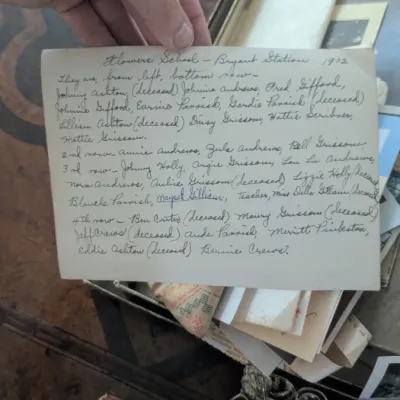 Flowers School - Bryant Station 1902
They are, from left, bottom row -
Johnny Ashton (deceased) Johnie Andrews, Fred Gifford,
Johnnie Gifford, Earnie Parrish, Gordie Parrish (deceased)
Ashton (deceased) Daisy Grissom, Hattie Scribner,
Mattie Grissom.
2nd row - Annie Andrews, Zula Andrews, Bell Grissom,
3rd row - Johnny Holly, Angie Grissom, Lou Andrews,
Nora Andrews, Aubie Grissom (deceased) Lizzie Holly
Parrish, Teacher, Miss
4th row - Ben Curtis (deceased) Maury Grissom (deceased)
Jeff Crews (deceased) Aude Parrish, Merritt Pinkston,
Eddie Ashton (deceased) Bernice Crews.